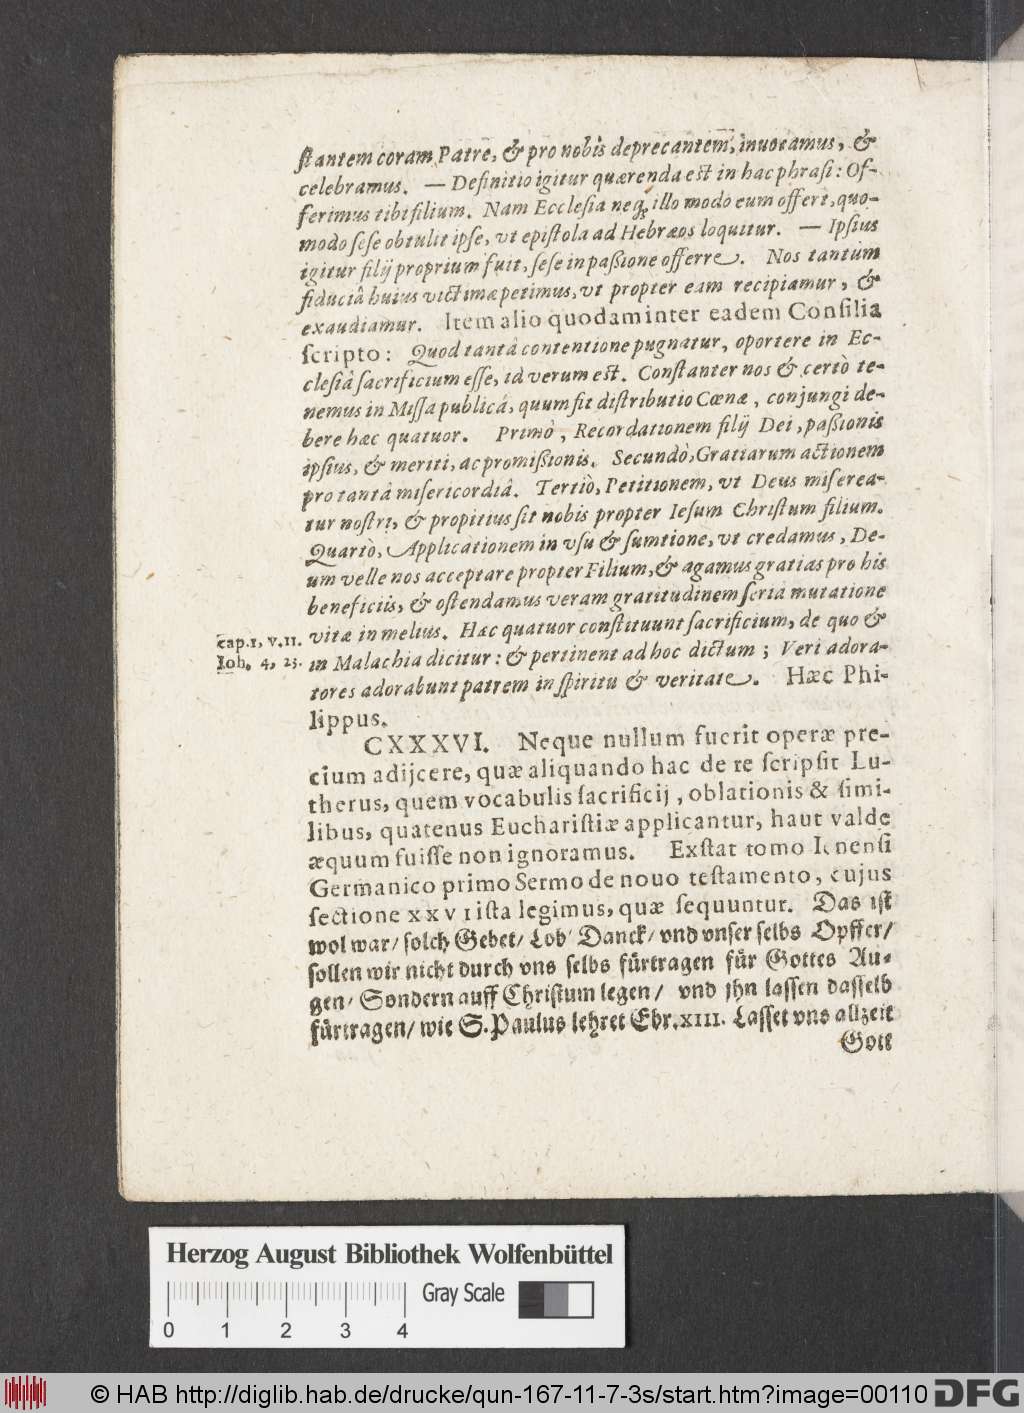 ſtantem coram Patre, & pro nobis deprecantem, invocamus, &
celebramus. — Definitio igitur quærenda est in hac phraſi: Of-
ferimus tibi filium. Nam Eccleſia neq́; illo modo eum offert, quo-
modo ſeſe obtulit ipſe, vt epiſtola ad Hebræos loquitur. — Ipſius
igitur filij proprium fuit, ſeſe in paßione offerre. Nos tantùm
fiduciâ huius victimæ petimus, vt propter eam recipiamur, &
exaudiamur. Item alio quodam inter eadem Conſilia
ſcripto: Quod tantâ contentione pugnatur, oportere in Ec-
cleſiâ ſacrificium eſſe, id verum est. Conſtanter nos & certò te-
nemus in Miſſa publicâ, quum fit diſtributio Cœnæ, conjungi de-
bere hæc quatuor. Primò, Recordationem filij Dei, paßionis
ipſius, & meriti, ac promißionis. Secundò, Gratiarum actionem
pro tantâ miſericordiâ. Tertiò, Petitionem, vt Deus miſerea-
tur noſtri, & propitius ſit nobis propter Ieſum Chriſtum filium.
Quartò, Applicationem in vſu & ſumtione, vt credamus, De-
um velle nos acceptare propter Filium, & agamus gratias pro his
beneficiis, & oſtendamus veram gratitudinem ſeria mutatione
vitæ in melius. Hæc quatuor conſtituunt ſacrificium, de quo &
cap. 1, v. 11.
in Malachia dicitur: & pertinent ad hoc dictum; Veri adora-
Ioh. 4, 23.
tores adorabunt patrem in ſpiritu & veritate. Hæc Phi-
lippus.
CXXXVI. Neque nullum fuerit operæ pre-
cium adijcere, quæ aliquando hac de re ſcripſit Lu-
therus, quem vocabulis ſacrificij, oblationis & ſimi-
libus, quatenus Euchariſtiæ applicantur, haut valde
æquum fuiſſe non ignoramus. Exſtat tomo Ienenſi
Germanico primo Sermo de nouo teſtamento, cujus
ſectione XXVI iſta legimus, quæ ſequuntur. Das iſt
wol war/ ſolch Gebet/ Lob/ Danck/ vnd vnſer ſelbs Opffer/
ſollen wir nicht durch vns ſelbs fürtragen für Gottes Au-
gen/ Sondern auff Chriſtum legen/ vnd jhn laſſen daſſelb
fürtragen/ wie S. Paulus lehret Ebr. XIII. Laſſet vns allzeit
Gott
Herzog August Bibliothek Wolfenbüttel
Gray Scale
0 1 2 3 4
© HAB http://diglib.hab.de/drucke/qun-167-11-7-3s/start.htm?image=00110 DFG